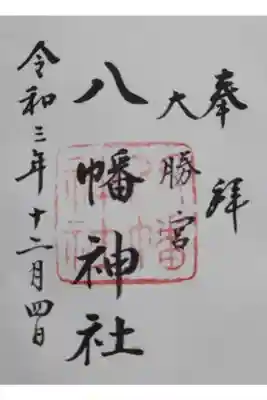 奉拝
大勝宮
八幡神社
令和三年十二月四日